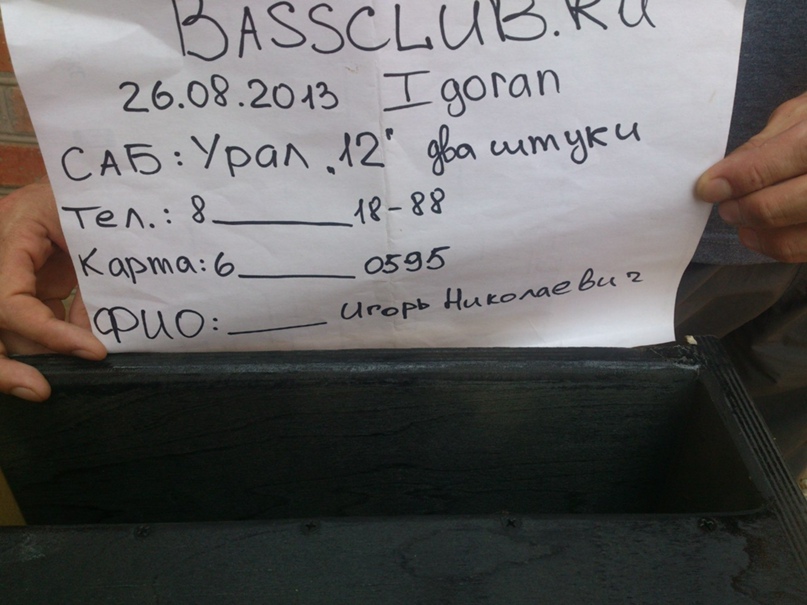 BASSCLUB.RU
26.08.2013 Igoran
САБ: Урал „12" два штуки
Тел.: 8__________18-88
Карта: 6_________ 0595
ФИО: _______ Игорь Николаевич